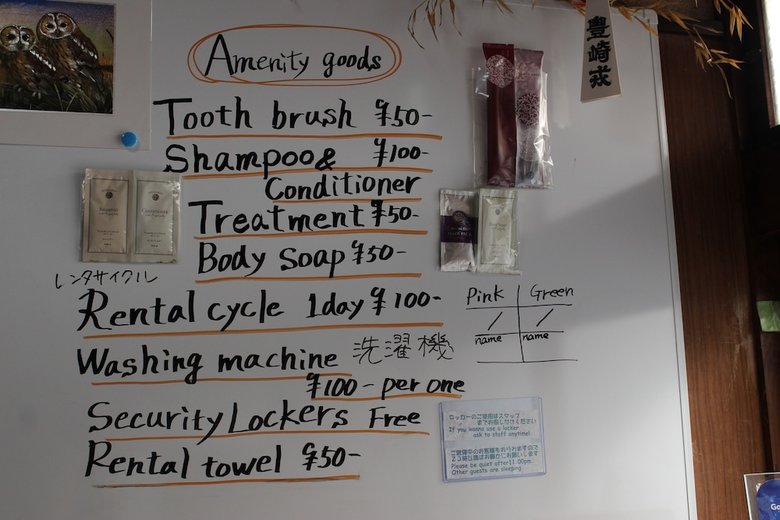 Amenity goods
豊崎家
Tooth brush ¥50-
Shampoo& ¥100-
Conditioner
Treatment ¥50-
Body soap ¥50-
レンタサイクル
Rental cycle 1day ¥100-
Pink Green
/ /
name name
Washing machine 洗濯機
¥100- per one
Security Lockers Free
Rental towel ¥50-
ロッカーのご使用はスタッフ
までお申し付けください
If you wanna use a locker
ask to staff anytime!
Please be quiet after11:00pm.
Other guests are sleeping